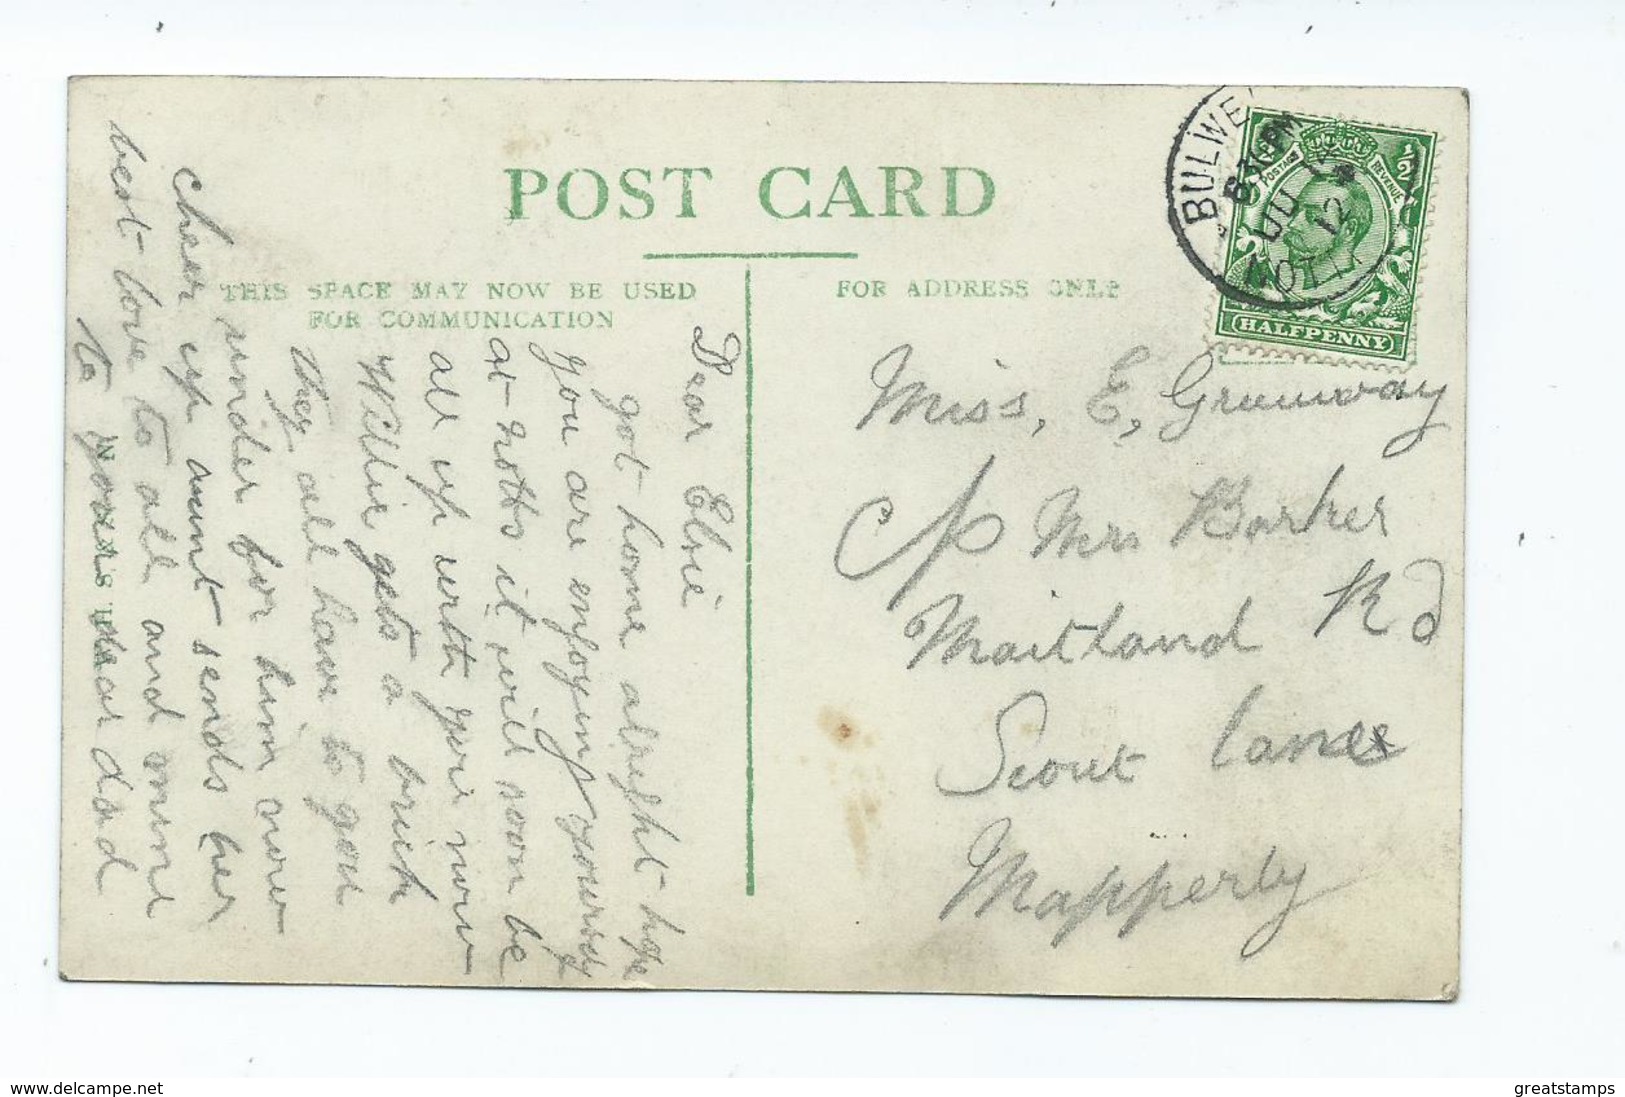 POST CARD
THIS SPACE MAY NOW BE USED
FOR COMMUNICATION
FOR ADDRESS ONLY
BULWE
8. PM
JU
12
NOTT
POSTAGE
REVENUE
1/2
HALFPENNY
Dear Elsie
got home alright hope
you are enjoying yourself
at Notts it will soon be
all up with you now
Willie gets a brick
they all have to you
under for him now
cheer up aunt sends her
best love to all and mine
to yours dear dad
Miss, E, Greenway
c/o Mrs Barker
Maitland Rd
Scout Lane
Mapperly
www.delcampe.net
greatstamps